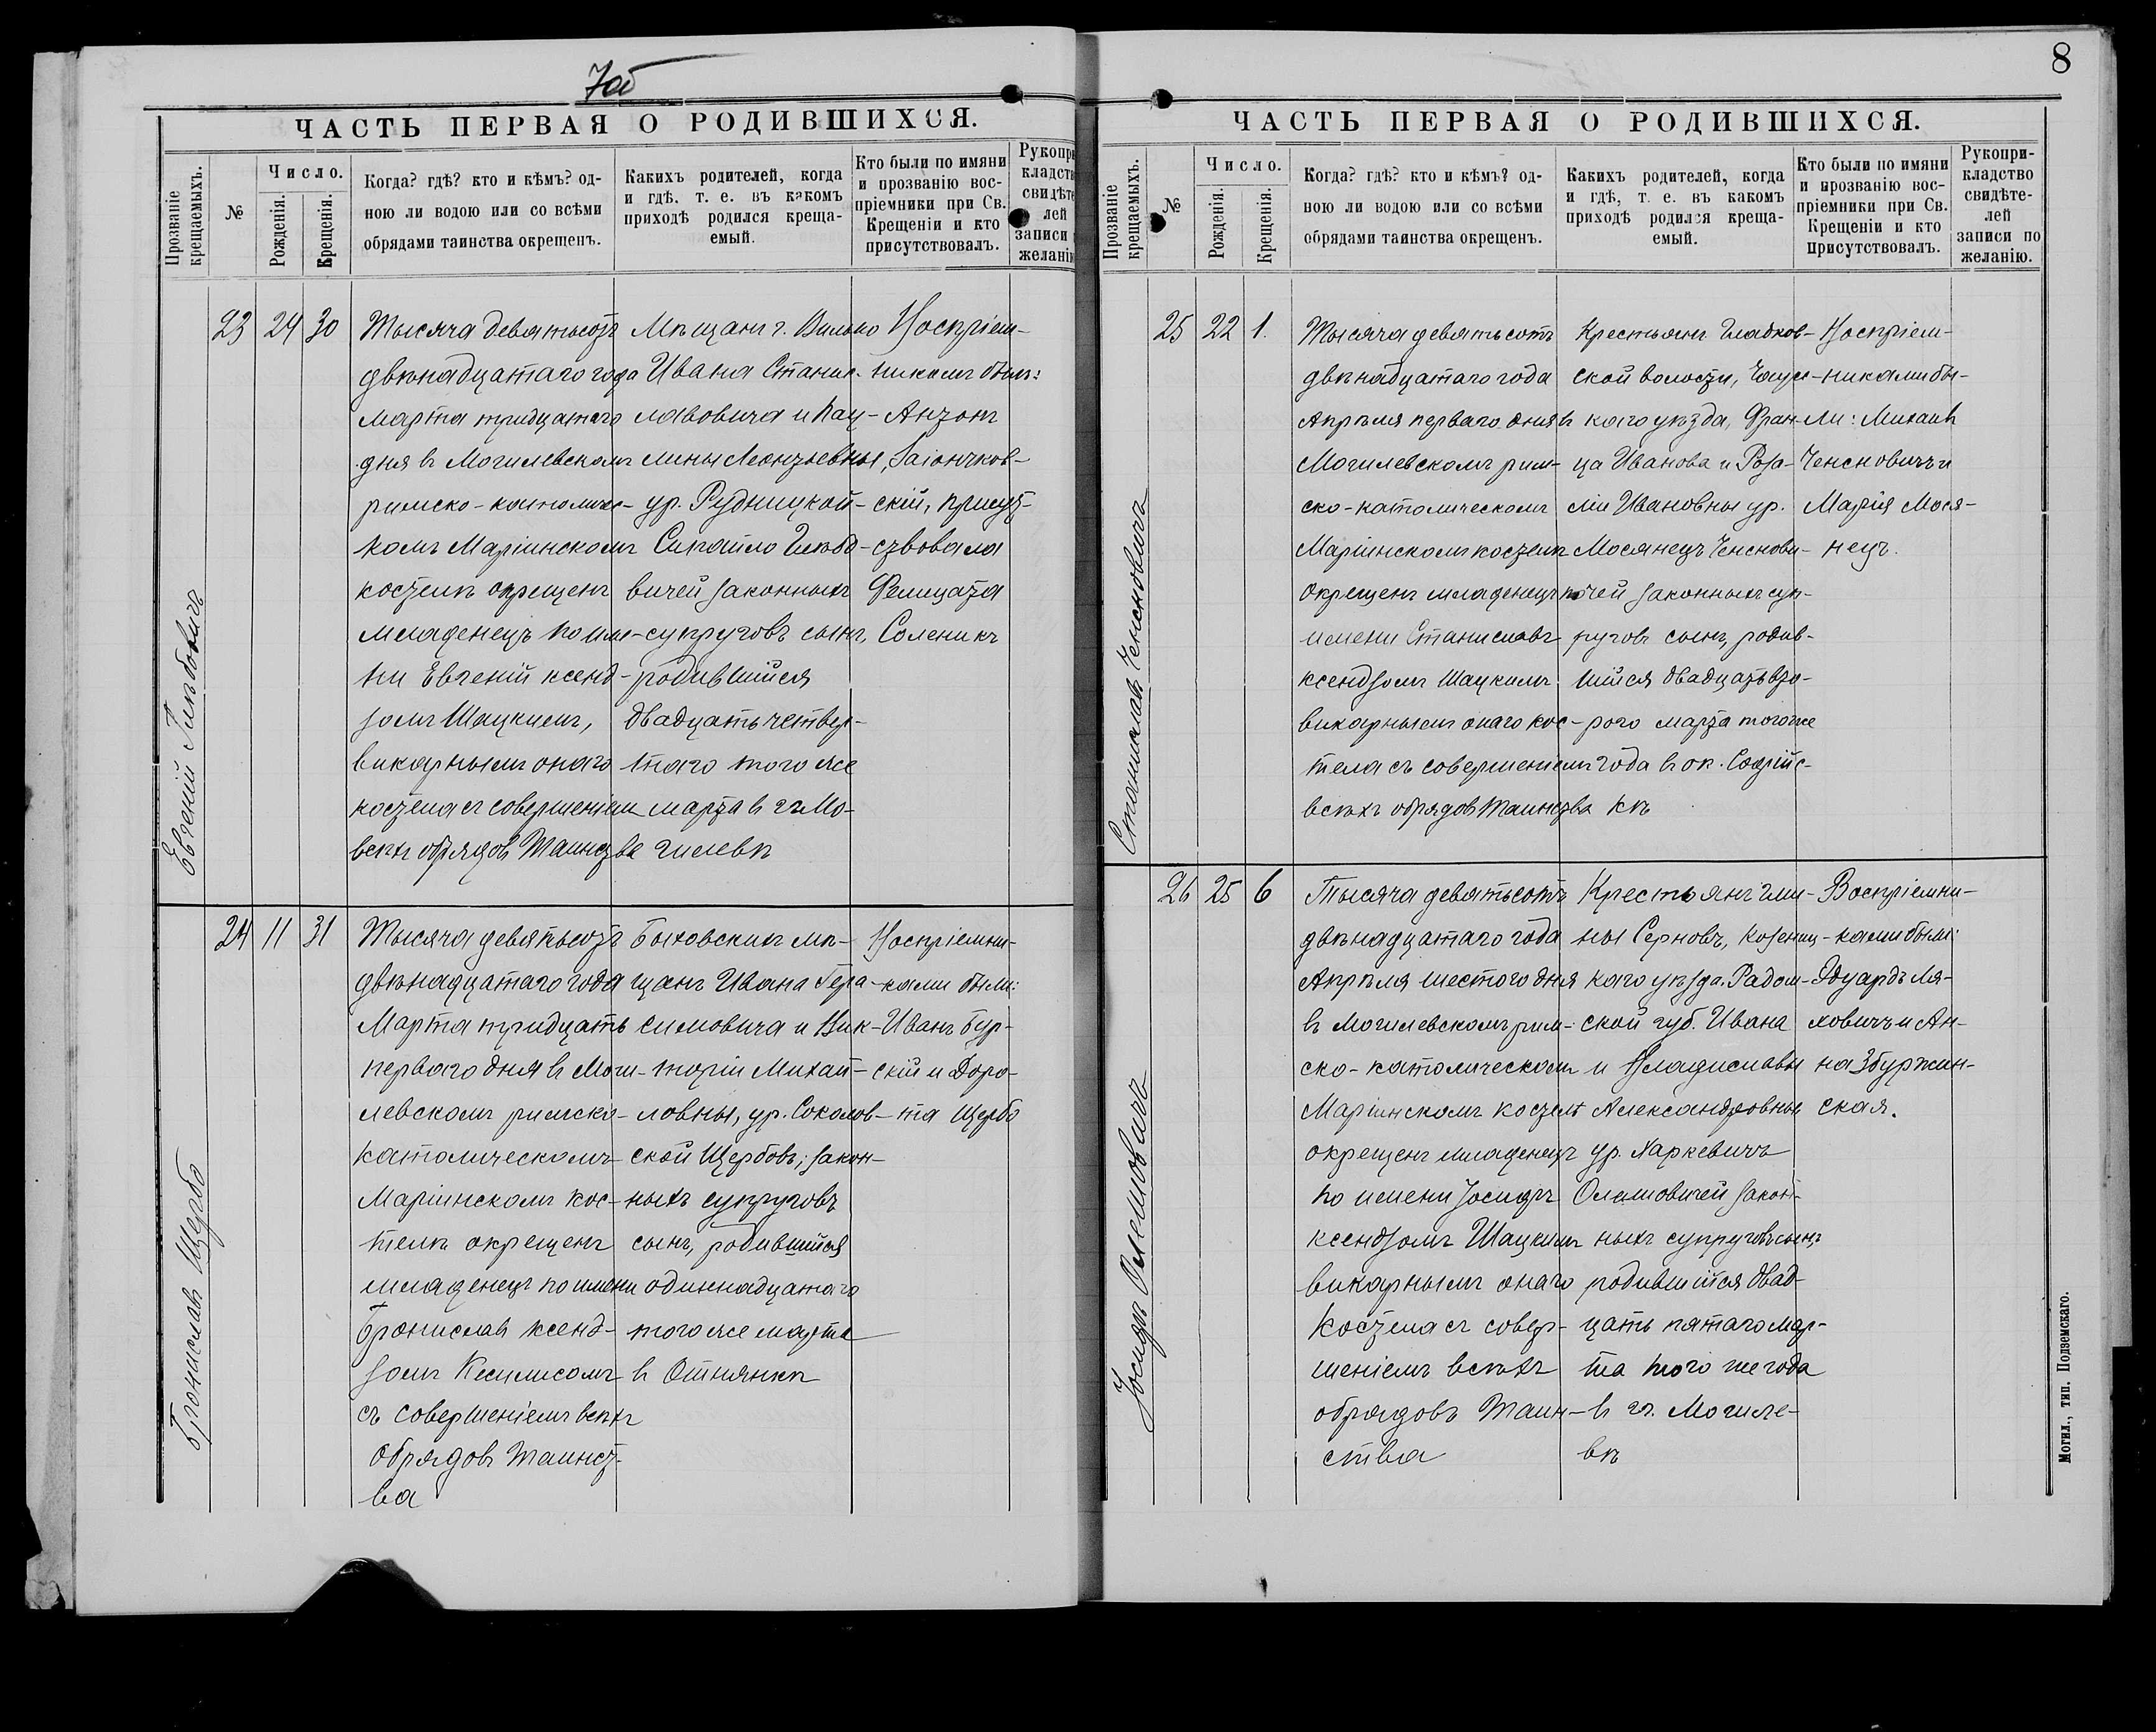 7об
ЧАСТЬ ПЕРВАЯ О РОДИВШИХСЯ.
Прозваніе крещаемыхъ.
№
Число.
Рожденія.
Крещенія.
Когда? гдѣ? кто и кѣмъ? од-
ною ли водою или со всѣми
обрядами таинства окрещенъ.
Какихъ родителей, когда
и гдѣ, т. е. въ какомъ
приходѣ родился креща-
емый.
Кто были по имяни
и прозванію вос-
пріемники при Св.
Крещеніи и кто
присутствовалъ.
Рукопри
кладств
свидѣте
лей
записи
желанію
Евгеній Глѣбовичъ
23 24 30
Тысяча девятьсотъ
двѣнадцатаго года
марта тридцатаго
дня въ Могилевскомъ
римско-католичес-
комъ Маріинскомъ
костелѣ окрещенъ
младенецъ по име-
ни Евгеній ксенд-
зомъ Шацкимъ,
викарнымъ онаго
костела съ совершеніемъ
всѣхъ обрядовъ Таинства
Мѣщанъ г. Вильно
Ивана Станис-
лавовича и Пау-
лины Леонтьевны,
ур. Рудницкой-
Сикайло Глѣбо-
вичей законныхъ
супруговъ сынъ,
родившійся
двадцать четвер-
таго того же
марта въ г. Мо-
гилевѣ
Воспріем-
никомъ былъ:
Антонъ
Заіончков-
скій, присут-
ствовала
Фелицата
Соленикъ
Брониславъ Щербо
24 11 31
Тысяча девятьсотъ
двѣнадцатаго года
Марта тридцать
перваго дня въ Моги-
левскомъ римско-
католическомъ
Маріинскомъ кос-
телѣ окрещенъ
младенецъ по имени
Брониславъ ксенд-
зомъ Кесилисомъ
съ совершеніемъ всѣхъ
обрядовъ Таинст-
ва
Быховскихъ мѣ-
щанъ Ивана Гера-
симовича и Вик-
торіи Михай-
ловны, ур. Соколов-
ской Щербовъ, закон-
ныхъ супруговъ
сынъ, родившійся
одиннадцатаго
того же марта
въ Отнянкѣ
Воспріемни-
ками были:
Иванъ Бур-
скій и Доро-
та Щербо
8
ЧАСТЬ ПЕРВАЯ О РОДИВШИХСЯ.
Прозваніе крещаемыхъ.
№
Число.
Рожденія.
Крещенія.
Когда? гдѣ? кто и кѣмъ? од-
ною ли водою или со всѣми
обрядами таинства окрещенъ.
Какихъ родителей, когда
и гдѣ, т. е. въ какомъ
приходѣ родился креща-
емый.
Кто были по имяни
и прозванію вос-
пріемники при Св.
Крещеніи и кто
присутствовалъ.
Рукопри-
кладство
свидѣте-
лей
записи по
желанію.
Станиславъ Ченсновичъ
25 22 1.
Тысяча девятьсотъ
двѣнадцатаго года
Апрѣля перваго дня въ
Могилевскомъ рим-
ско-католическомъ
Маріинскомъ костелѣ
окрещенъ младенецъ по
имени Станиславъ
ксендзомъ Шацкимъ
викарнымъ онаго кос-
тела съ совершеніемъ
всѣхъ обрядовъ Таинства
Крестьянъ Гладков-
ской волости, Чаусс-
каго уѣзда, Фран-
ца Иванова и Роза-
ліи Ивановны ур.
Мосянецъ Ченснови-
чей законныхъ суп-
руговъ сынъ, родив-
шійся двадцать вто-
рого марта того же
года въ ок. Софійс-
кѣ
Воспріем-
никами бы-
ли: Михаилъ
Ченсновичъ и
Марія Мося-
нецъ.
Іосифъ Олешовичъ
26 25 6
Тысяча девятьсотъ
двѣнадцатаго года
Апрѣля шестого дня
въ Могилевскомъ рим-
ско-католическомъ
Маріинскомъ костелѣ
окрещенъ младенецъ
по имени Іосифъ
ксендзомъ Шацкимъ
викарнымъ онаго
костела съ совер-
шеніемъ всѣхъ
обрядовъ Таин-
ства
Крестьянъ гми-
ны Серновъ, Козениц-
каго уѣзда, Радом-
ской губ. Ивана
и Владиславы
Александровны
ур. Харкевичъ
Олешовичей закон-
ныхъ супруговъ сынъ,
родившійся двад-
цать пятаго Мар-
та того же года
въ гр. Могиле-
вѣ
Воспріемни-
ками были:
Эдуардъ Ля-
ховичъ и Ан-
на Збуржин-
ская.
Могил., тип. Подземскаго.